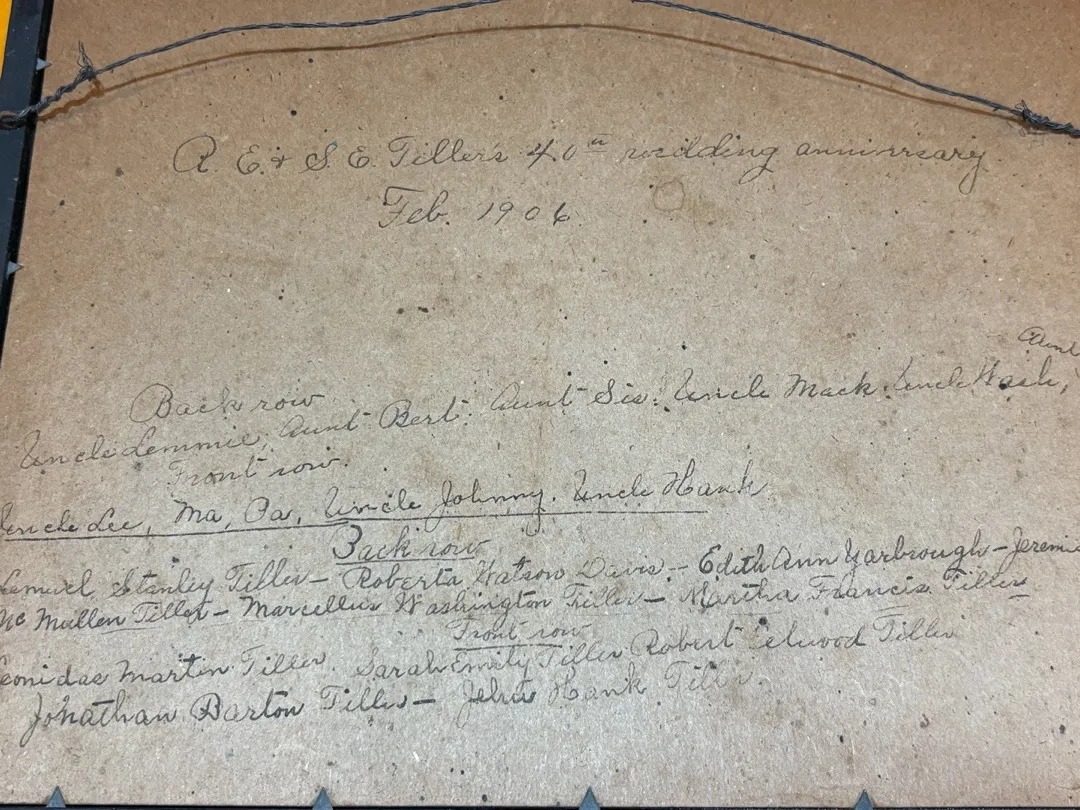 R. E. & S. E. Tiller's 40th wedding anniversary
Feb. 1906
Aunt
Back row
Uncle Lemmie, Aunt Bert. Aunt Sis. Uncle Mack. Uncle Wash,
Front row.
Uncle Lee, Ma, Pa, Uncle Johnny. Uncle Hank
Back row
Lemuel Stanley Tiller – Roberta Watson Davis – Edith Ann Yarbrough – Jeremi
Mc Mullen Tiller – Marcellus Washington Tiller – Martha Francis Tiller
Front row
Leonidas Martin Tiller. Sarah Emily Tiller Robert Elwood Tiller
Jonathan Barton Tiller – Hank Tiller.